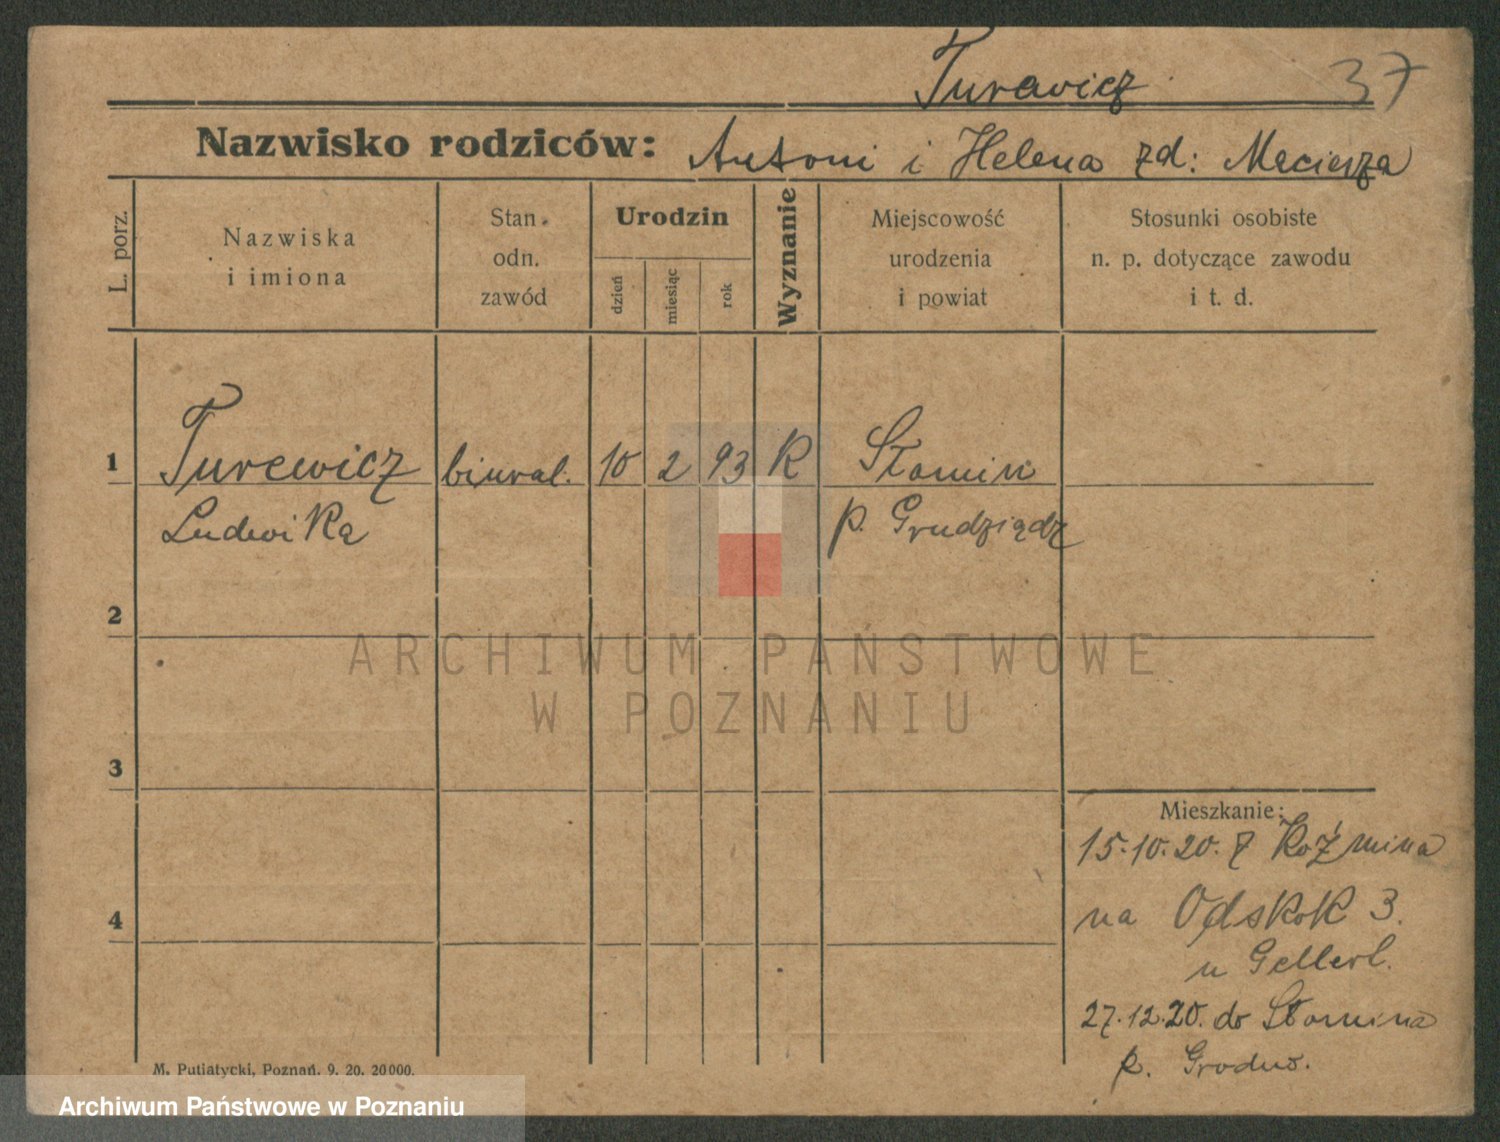 Turewicz 37
Nazwisko rodziców: Antoni i Helena zd: Maciesza
L. porz.
Nazwiska
i imiona
Stan
odn.
zawód
Urodzin
dzień
miesiąc
rok
Wyznanie
Miejscowość
urodzenia
i powiat
Stosunki osobiste
n. p. dotyczące zawodu
i t. d.
1 Turewicz biural. 10 2 93 R Słomin
Ludwika p. Grudziądz
2
3
4
Mieszkanie:
15.10.20. z Koźmina
na Odskok 3.
u Gellerl.
27.12.20. do Słomina
p. Grodno.
M. Putiatycki, Poznań. 9. 20. 20000.
ARCHIWUM PAŃSTWOWE
W POZNANIU
Archiwum Państwowe w Poznaniu